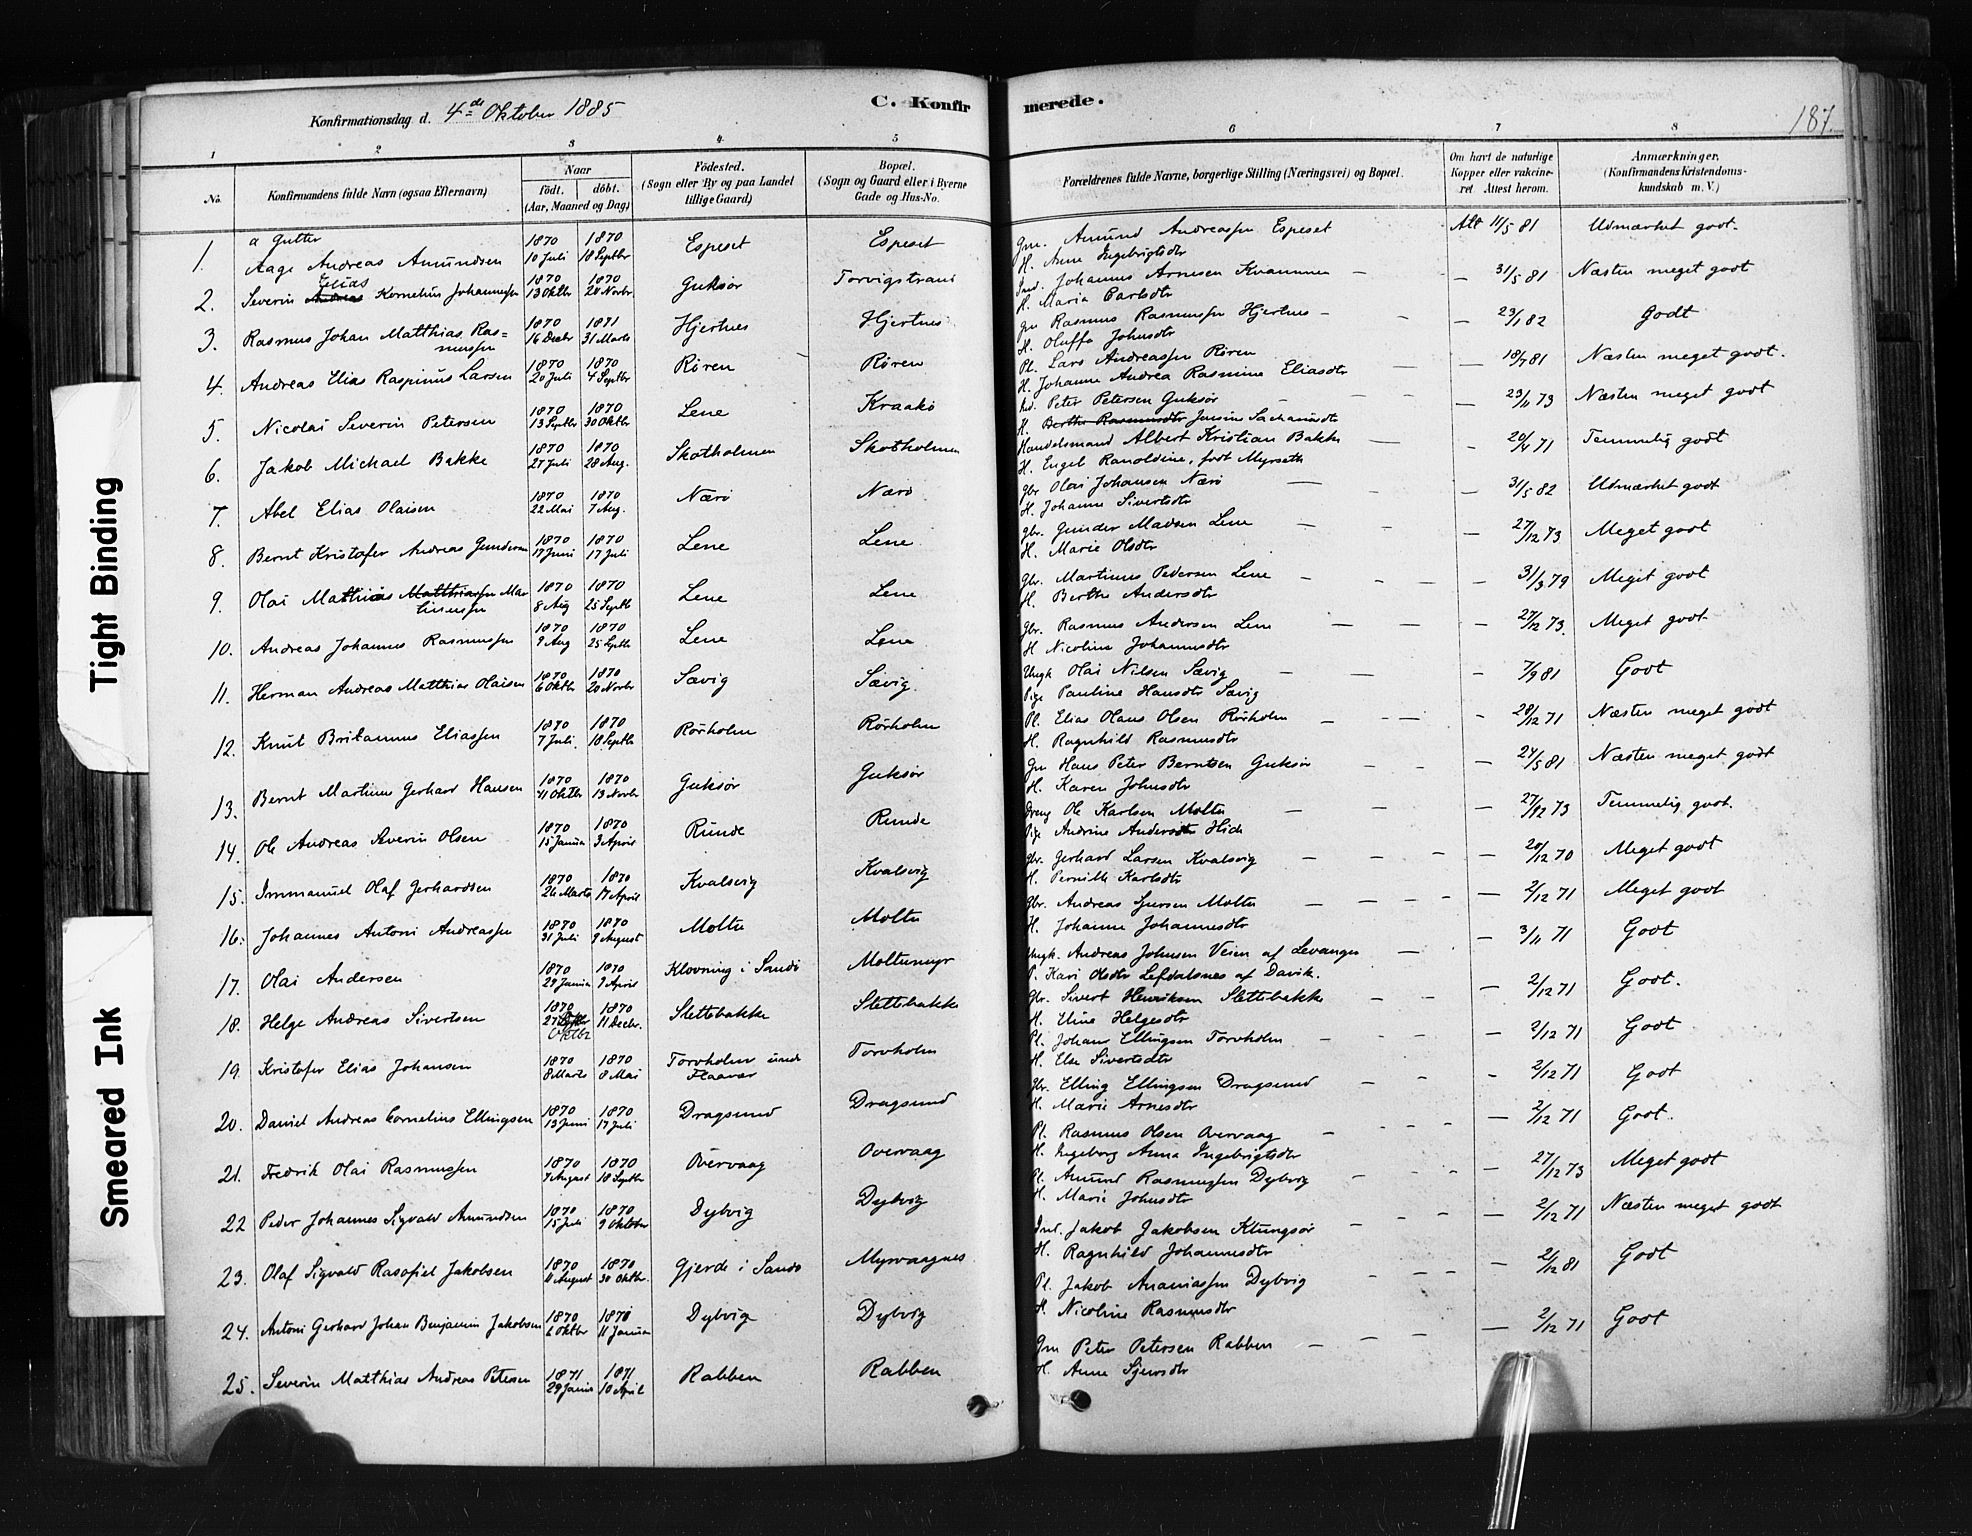 Konfirmationsdag d. 4de Oktober 1885
C. Konfir merede.
187.
1 2 3 4 5 6 7 8
No.
Konfirmandens fulde Navn (ogsaa Efternavn)
Naar
födt. döbt.
(Aar, Maaned og Dag)
Födested.
(Sogn eller By og paa Landet
tillige Gaard)
Bopæl.
(Sogn og Gaard eller i Byerne
Gade og Hus-No.
Forældrenes fulde Navne, borgerlige Stilling (Næringsvei) og Bopæl.
Om havt de naturlige
Kopper eller vakcine-
ret Attest herom.
Anmærkninger.
(Konfirmandens Kristendoms-
kundskab m. V.)
a Gutter
1. Aage Andreas Amundsen 1870 10 Juli 1870 18 Septbr Espeset Espeset Gm. Amund Andreassen Espeset Att 11/5 81 Udmærket godt.
H. Anne Ingebrigtsdtr
2. Severin Andreas Elias Kornelius Johannessen 1870 13 Oktbr 1870 20 Novbr Guksör Torvigstrand Ind. Johannes Arnesen Kvammen — 31/5 81 Næsten meget godt
H. Maria Carlsdtr
3. Rasmus Johan Matthias Ras= 1870 16 Decbr 1871 31 Marts Hjertnes Hjertnes Gm Rasmus Rasmussen Hjertnes — 23/1 82 Godt
mussen
H. Oluffa Johnsdtr
4. Andreas Elias Raspinus Larsen 1870 20 Juli 1870 4 Septbr Rören Rören Pl. Lars Andreassen Rören — 18/7 81 Næsten meget godt.
H. Johanne Andrea Rasmine Eliasdtr
5. Nicolai Severin Petersen 1870 13 Septbr 1870 30 Oktbr Lene Kraakö Ind. Peter Petersen Guksör — 23/11 73 Næsten meget godt
H. Berthe Rasmusdtr Jensine Sachariasdtr
6. Jakob Michael Bakke 1870 27 Juli 1870 28 Aug. Skotholmen Skotholmen Handelsmand Albert Kristian Bakke — 20/4 71 Temmelig godt
H. Engel Ranoldine, født Myrseth
7. Abel Elias Olaisen 1870 22 Mai 1870 7 Aug. Nærö Nærö Gbr Olai Johansen Nærö — 31/5 82 Udmærket godt
H. Johanne Sivertsdtr
8. Bernt Kristofer Andreas Gundersen 1870 17 Juni 1870 17 Juli Lene Lene Gbr. Gunder Madsen Lene — 27/12 73 Meget godt
H. Marie Olsdtr
9. Olai Mathias Matthiassen Mar 1870 8 Aug 1870 25 Septb Lene Lene Gbr. Martinus Pedersen Lene — 31/3 79 Meget godt
tinussen
H. Berthe Andersdtr
10. Andreas Johannes Rasmussen 1870 9 Aug 1870 25 Septb Lene Lene Gbr. Rasmus Andersen Lene — 27/12 73. Meget godt
H Nicoline Johannesdtr
11. Herman Andreas Matthias Olaisen 1870 6 Oktbr 1870 20 Novbr Sævig Sævig. Ungk Olai Nilsen Sævig — 7/9 81 Godt
Pige Pauline Hansdtr Sævig
12. Knut Britannus Eliassen 1870 7 Juli. 1870 18 Septbr Rörholm Rörholm Pl. Elias Olaus Olsen Rörholm — 28/12 71 Næsten meget godt
H. Ragnhild Rasmusdtr
13. Bernt Martinus Gerhard Hansen 1870 11 Oktbr 1870 13 Novbr Guksör Guksör Gm Hans Peter Berntsen Guksör — 24/5 81 Næsten meget godt
H. Karen Johnsdtr
14. Ole Andreas Severin Olsen 1870 15 Januar 1870 3 April Runde Runde Dreng Ole Karlsen Moltu — 27/12 73 Temmelig godt.
Pige Andrine Andersdtr Hide
15. Immanuel Olaf Gerhardsen 1870 26 Marts 1870 17 April Kvalsvig Kvalsvig Gbr. Gerhard Larsen Kvalsvig — 20/12 70 Meget godt
H. Pernille Karlsdtr
16. Johannes Antoni Andreassen 1870 31 Juli 1870 9 August Moltu Moltu Gbr. Andreas Sjursen Moltu — 2/12 71 Meget godt
H. Johanne Johannesdtr
17. Olai Andersen 1870 29 Januar 1870 9 April Klovning i Sandö Moltumyr Ungk. Andreas Johnsen Veien af Levanger — 3/11 71 Godt
P. Kari Olsdtr Lefdalsnes af Davik.
18. Helge Andreas Sivertsen 1870 27 Oktbr 1870 11 Decbr. Slettebakke Slettebakke Gbr. Sivert Henriksen Slettebakke — 2/12 71 Godt.
H. Eline Helgesdtr
19. Kristofer Elias Johansen 1870 8 Marts 1870 8 Mai Torvholm und Torvholm Pl. Johan Ellingsen Torvholm — 2/12 71 Godt
Flaavær
H. Else Sivertsdtr
20. Daniel Andreas Cornelius Ellingsen 1870 13 Juni 1870 17 Juli Dragsund Dragsund Gbr. Elling Ellingsen Dragsund — 2/12 71 Godt
H. Marie Arnesdtr
21. Fredrik Olai Rasmussen 1870 7 August 1870 18 Septbr Overvaag Overvaag Pl. Rasmus Olsen Overvaag — 2/12 71 Godt.
H. Ingeborg Anna Ingebrigtsdtr
22 Peder Johannes Sigvald Amundsen 1870 15 Juli 1870 9 Oktober Dybvig Dybvig Pl. Amund Rasmussen Dybvig — 27/12 73 Meget godt
H. Marie Johnsdtr
23. Olaf Sigvald Rasafiel Jakobsen 1870 11 August 1870 30 Oktbr. Gjerde i Sandö Myrvaagnes Ind. Jakob Jakobsen Klungsör — 2/12 71 Næsten meget godt
H. Ragnhild Johannesdtr
24. Antoni Gerhard Johan Benjamin Jakobsen 1870 6 Oktbr 1871 11 Januar Dybvig Dybvig Pl. Jakob Ananiassen Dybvig — 2/12 81 Godt
H. Nicoline Rasmusdtr
25. Severin Matthias Andreas Petersen 1871 29 Januar 1871 10 April Rabben Rabben Gm Peter Petersen Rabben — 2/12 71 Godt
H. Anne Sjursdtr
Tight Binding
Smeared Ink